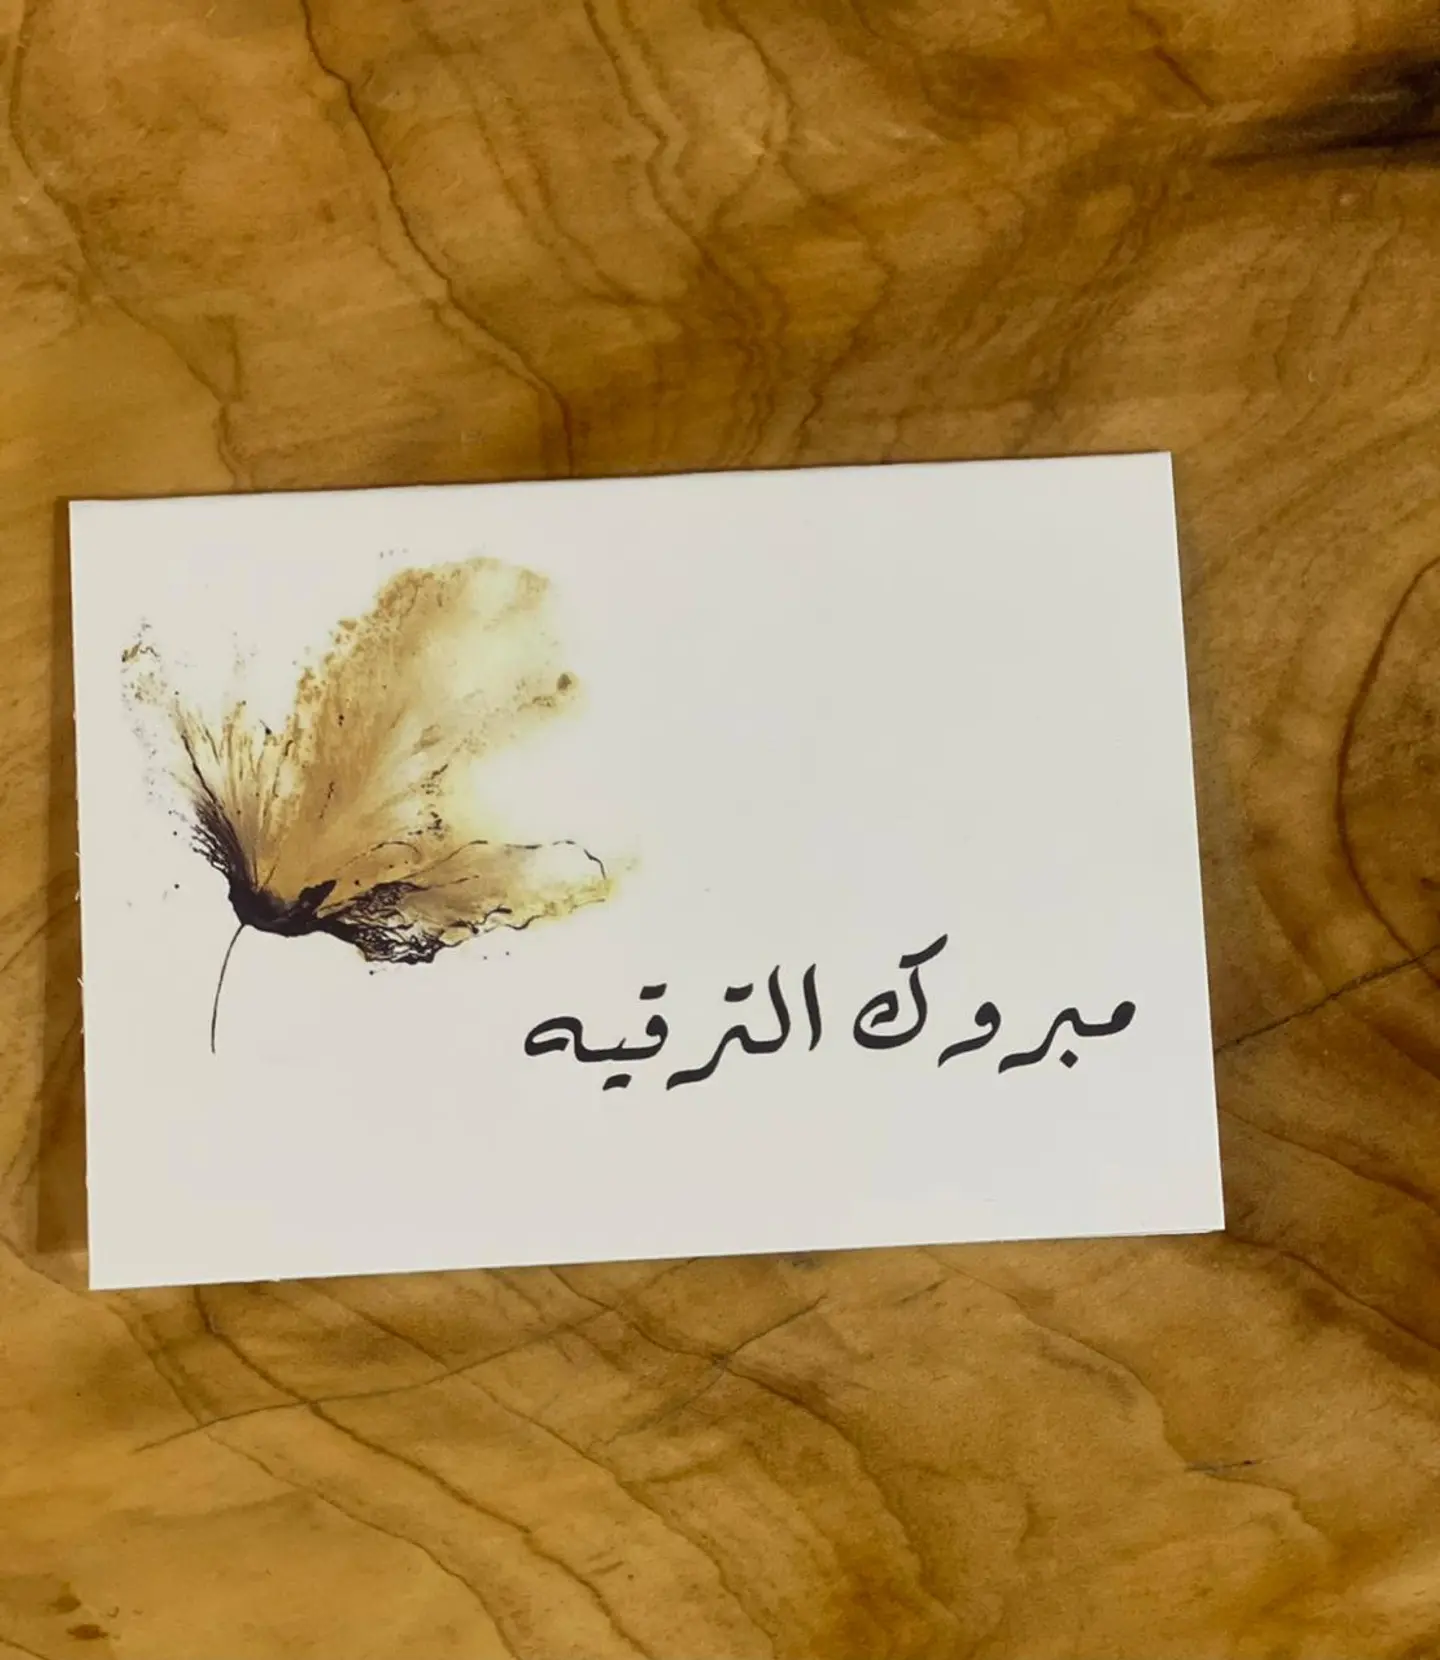 مبروك الترقيه